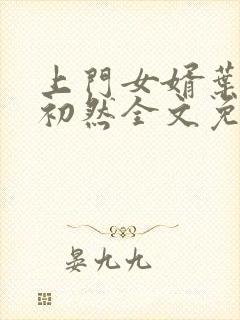 上門女婿葉
初然全文免
晏九九